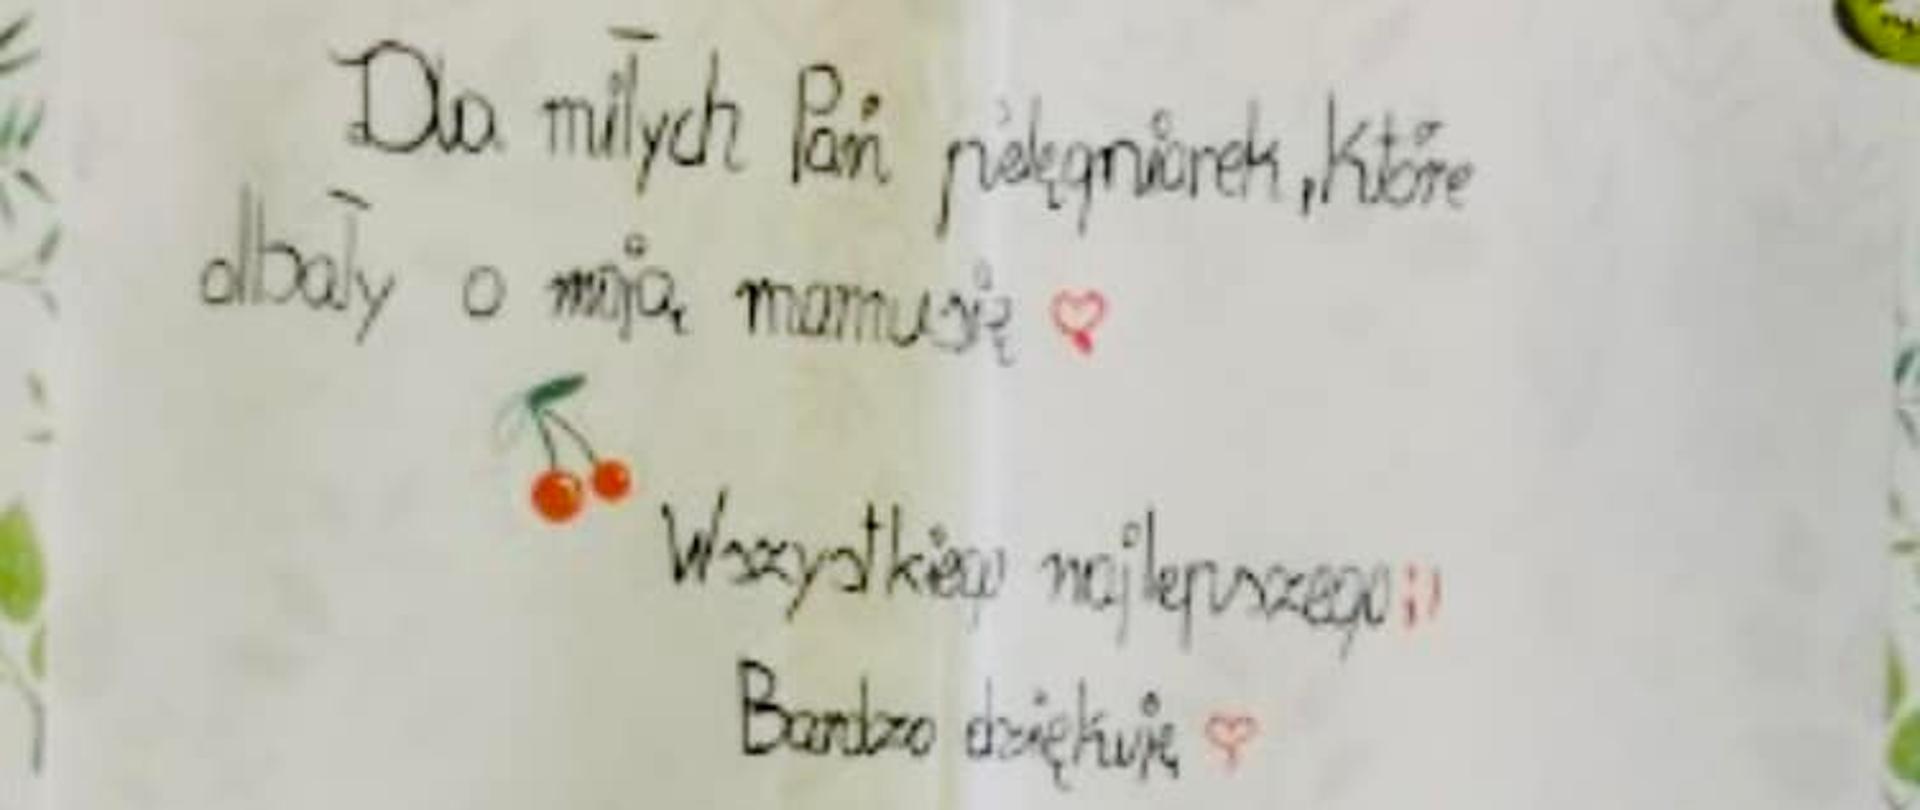 Dla miłych Pań pielęgniarek, które
dbały o moją mamusię ♡
Wszystkiego najlepszego :)
Bardzo dziękuję ♡